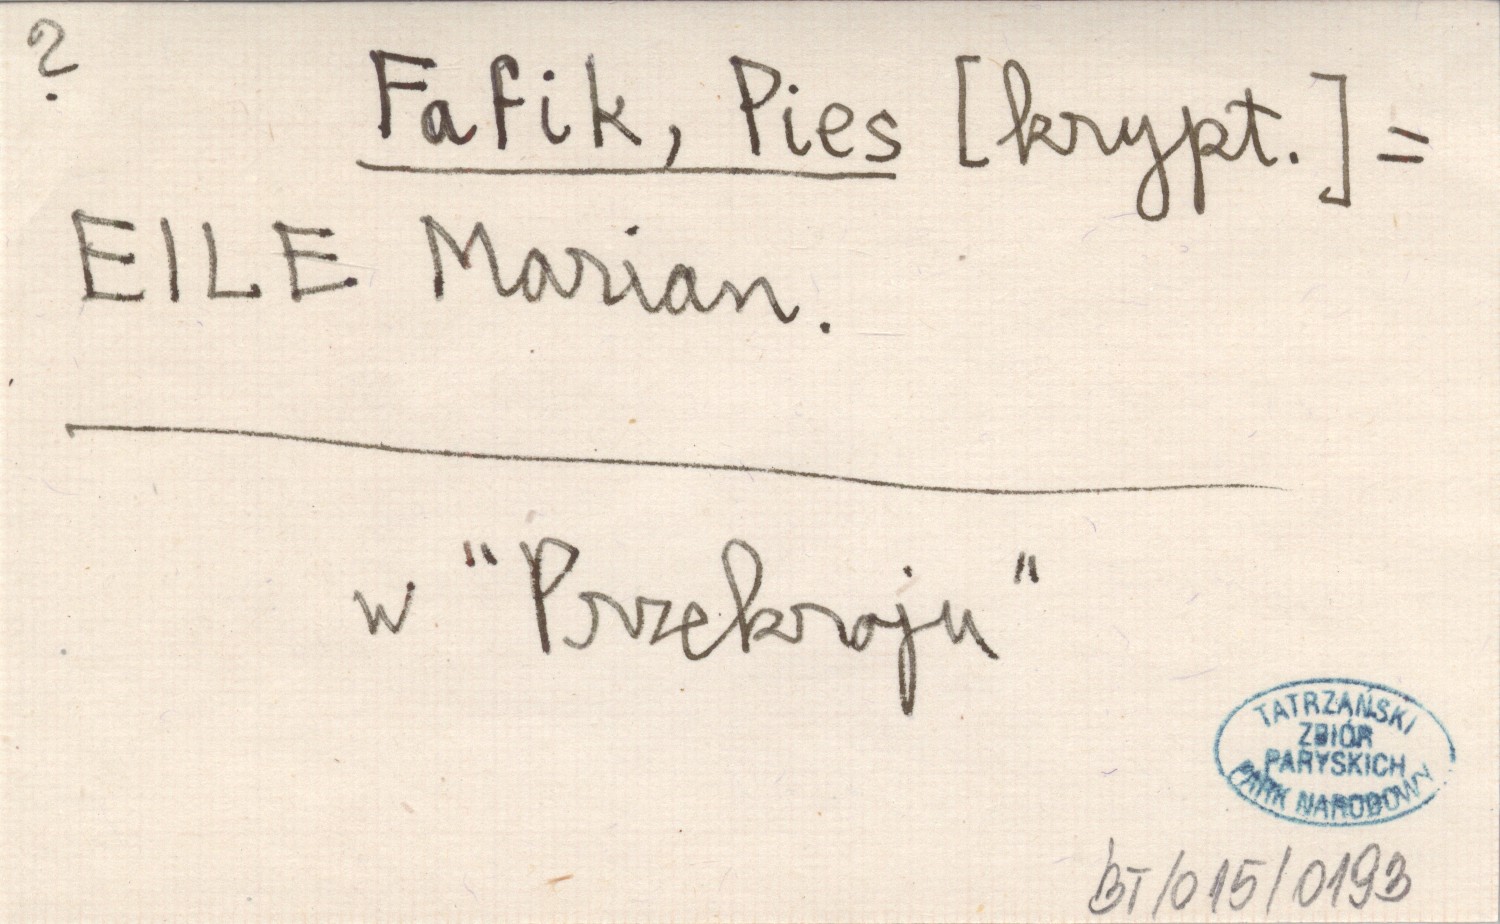 ?
Fafik, Pies [krypt.] =
EILE Marian.
w "Przekroju"
TATRZAŃSKI
ZBIÓR
PARYSKICH
PARK NARODOWY
BT/015/0193